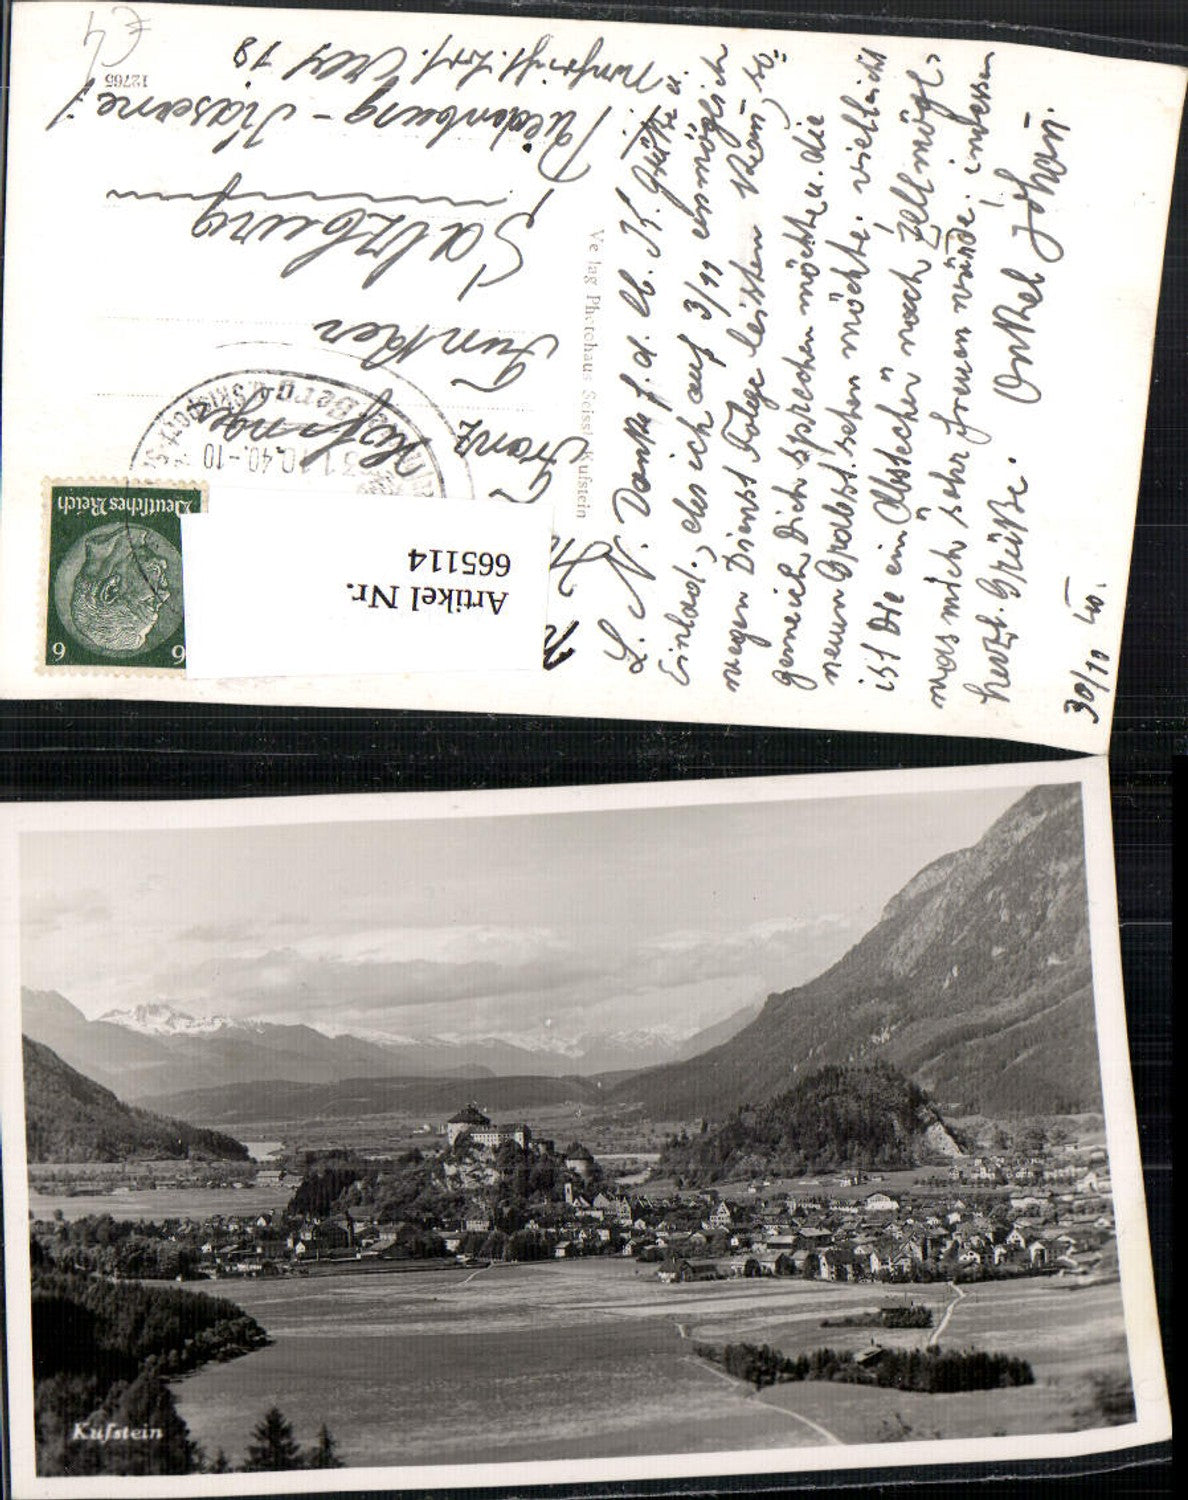 €4
12765
Deutsches Reich
6 6
31.10.40.-10
Artikel Nr.
665114
Franz
Funkher
Salzburg
Riedenburg-Kaserne!
Verlag Photohaus Seissl, Kufstein
L. N. Danke f. d. Ub. K. Grüße u.
Einlad., das ich auf 3/11 unmöglich
wegen Dienst Folge leisten kann, so
gerne ich Dich sprechen möchte u. die
neuen Grabst. sehen möchte. vielleicht
ist Die ein Abstecher nach Zell mögl.,
was mich sehr freuen würde. indessen
herzl. Grüße. Onkel Johann.
30/10 40.
Kufstein